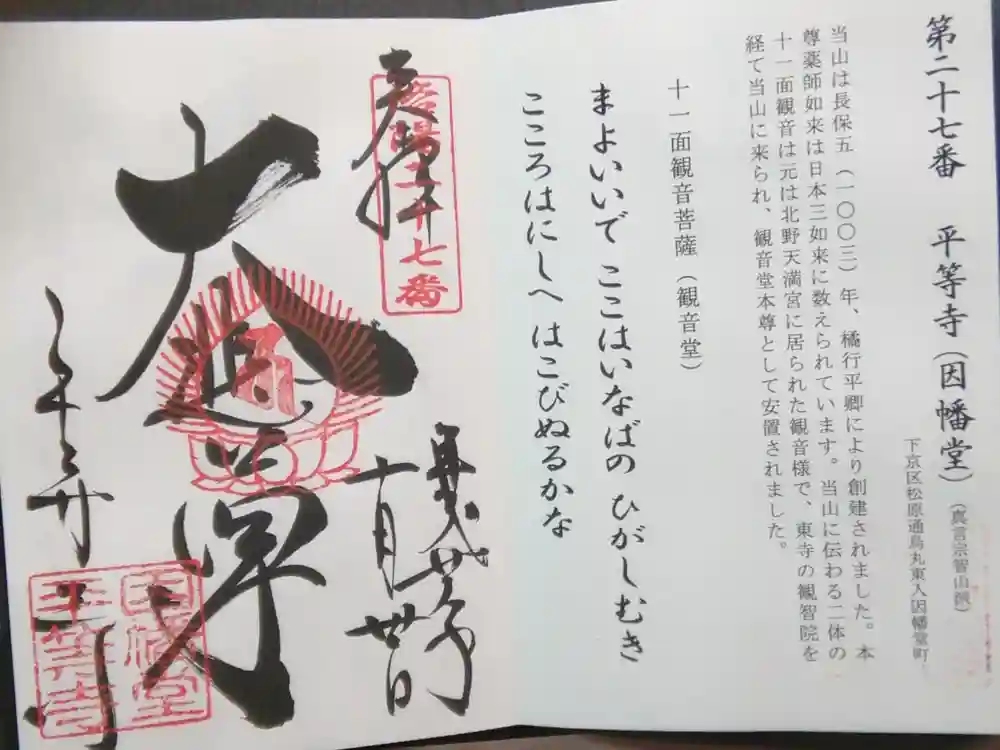 第二十七番 平等寺(因幡堂)(真言宗智山派)
下京区松原通烏丸東入因幡堂町
当山は長保五(一〇〇三)年、橘行平卿により創建されました。本
尊薬師如来は日本三如来に数えられています。当山に伝わる二体の
十一面観音は元は北野天満宮に居られた観音様で、東寺の観智院を
経て当山に来られ、観音堂本尊として安置されました。
十一面観音菩薩(観音堂)
まよいいで ここはいなばの ひがしむき
こころはにしへ はこびぬるかな
奉拝
洛陽二十七番
大悲
十月廿日
平等寺
因幡堂
平等寺